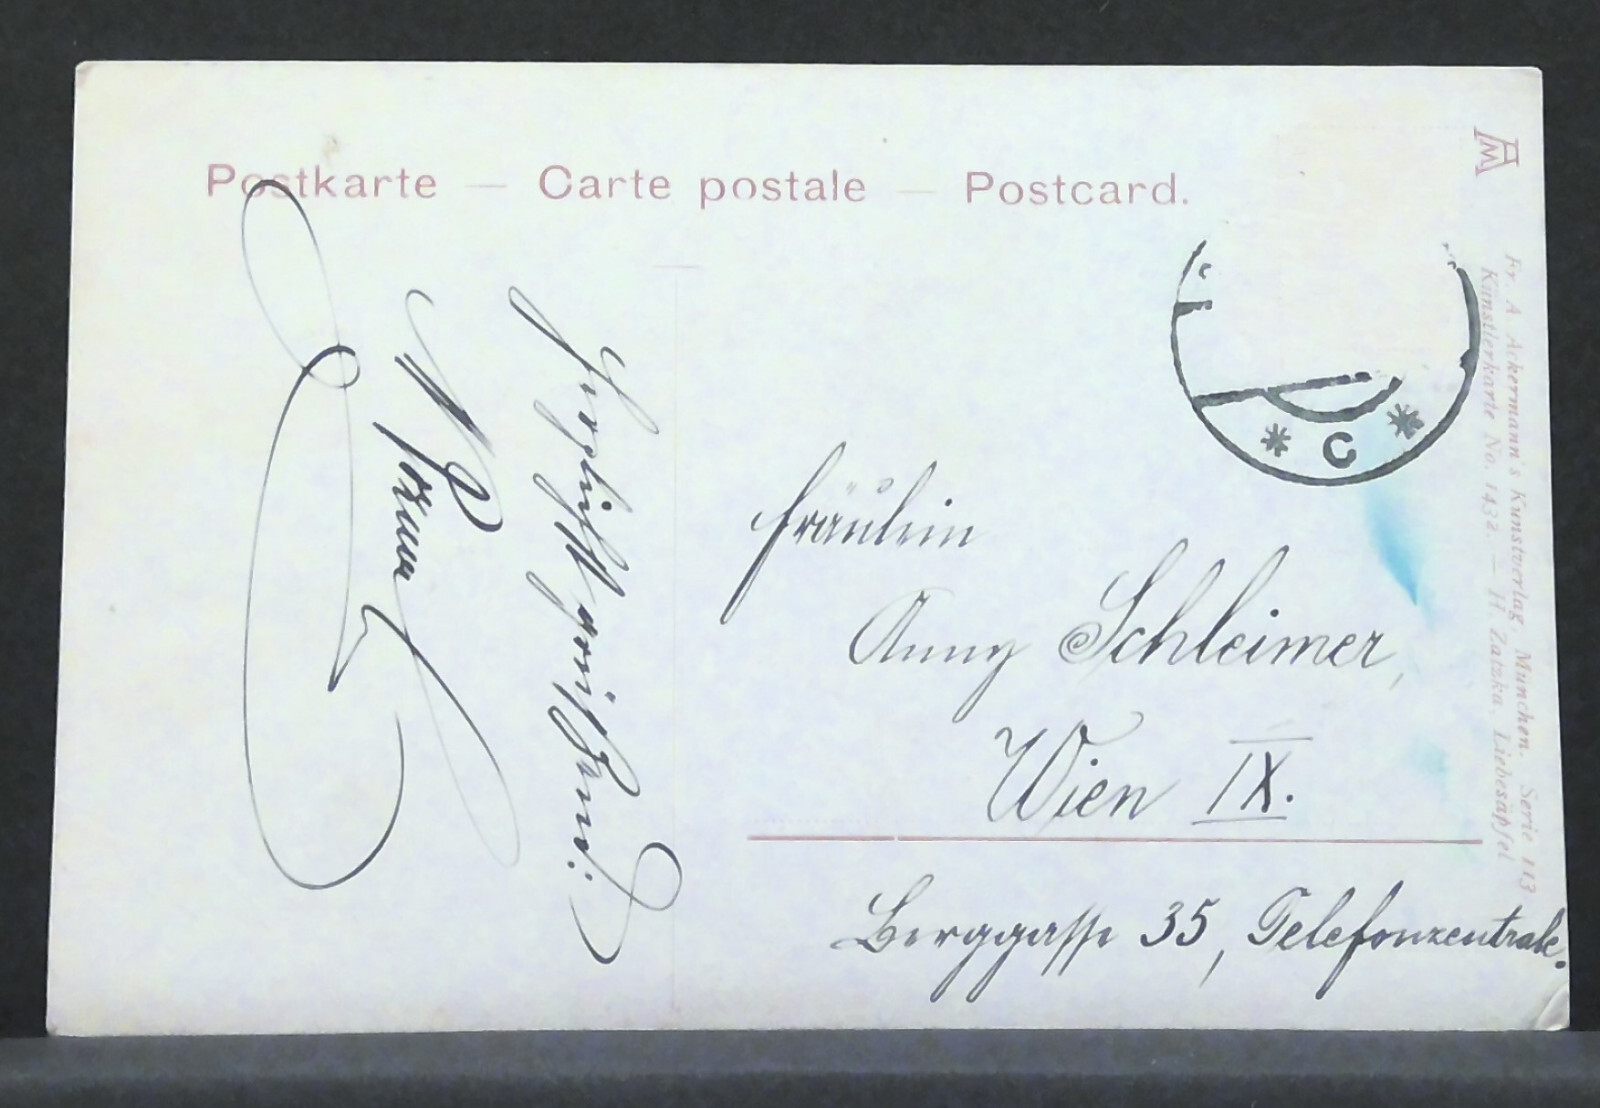 Postkarte — Carte postale — Postcard.
Fr. A. Ackermann's Kunstverlag, München. Serie 113
Künstlerkarte No. 1432. — H. Zatzka, Liebesäpfel
C
Fräulein
Anny Schleimer,
Wien IX.
Berggasse 35, Telefonzentrale.